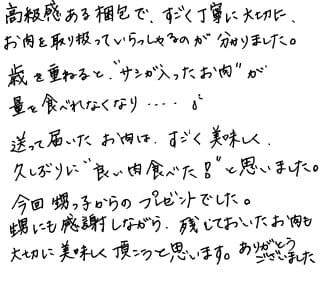 高級感ある梱包で、すごく丁寧に大切に、
お肉を取り扱っていらっしゃるのが分かりました。
歳を重ねると、"サシが入ったお肉"が
量を食べれなくなり‥‥
送って届いたお肉は、すごく美味しく、
久しぶりに"良い肉食べた!"と思いました。
今回甥っ子からのプレゼントでした。
甥にも感謝しながら、残しておいたお肉も
大切に美味しく頂こうと思います。ありがとう
ございました